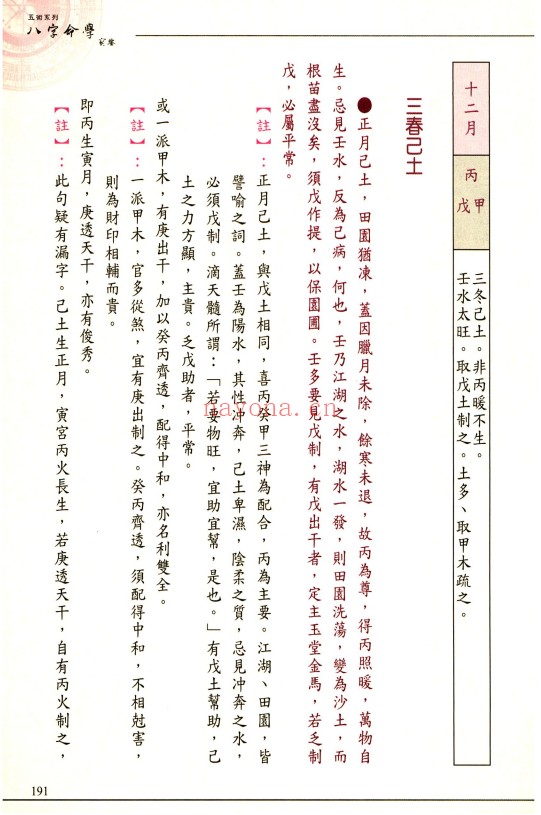 五術系列
八字命學
十二月
丙 甲
戊
三冬己土。非丙暖不生。
壬水太旺。取戊土制之。土多、取甲木疏之。
三春己土
●正月己土，田園猶凍，蓋因臘月未除，餘寒未退，故丙為尊，得丙照暖，萬物自
生。忌見壬水，反為己病，何也，壬乃江湖之水，湖水一發，則田園洗蕩，變為沙土，而
根苗盡沒矣，須戊作提，以保園圃。壬多要見戊制，有戊出干者，定主玉堂金馬，若乏制
戊，必屬平常。
【註】：正月己土，與戊土相同，喜丙癸甲三神為配合，丙為主要。江湖、田園，皆
譬喻之詞。蓋壬為陽水，其性沖奔，己土卑濕，陰柔之質，忌見沖奔之水，
必須戊制。滴天髓所謂：「若要物旺，宜助宜幫，是也。」有戊土幫助，己
土之力方顯，主貴。乏戊助者，平常。
或一派甲木，有庚出干，加以癸丙齊透，配得中和，亦名利雙全。
【註】：一派甲木，官多從煞，宜有庚出制之。癸丙齊透，須配得中和，不相尅害，
則為財印相輔而貴。
即丙生寅月，庚透天干，亦有俊秀。
【註】：此句疑有漏字。己土生正月，寅宮丙火長生，若庚透天干，自有丙火制之，
191
nayona.cn